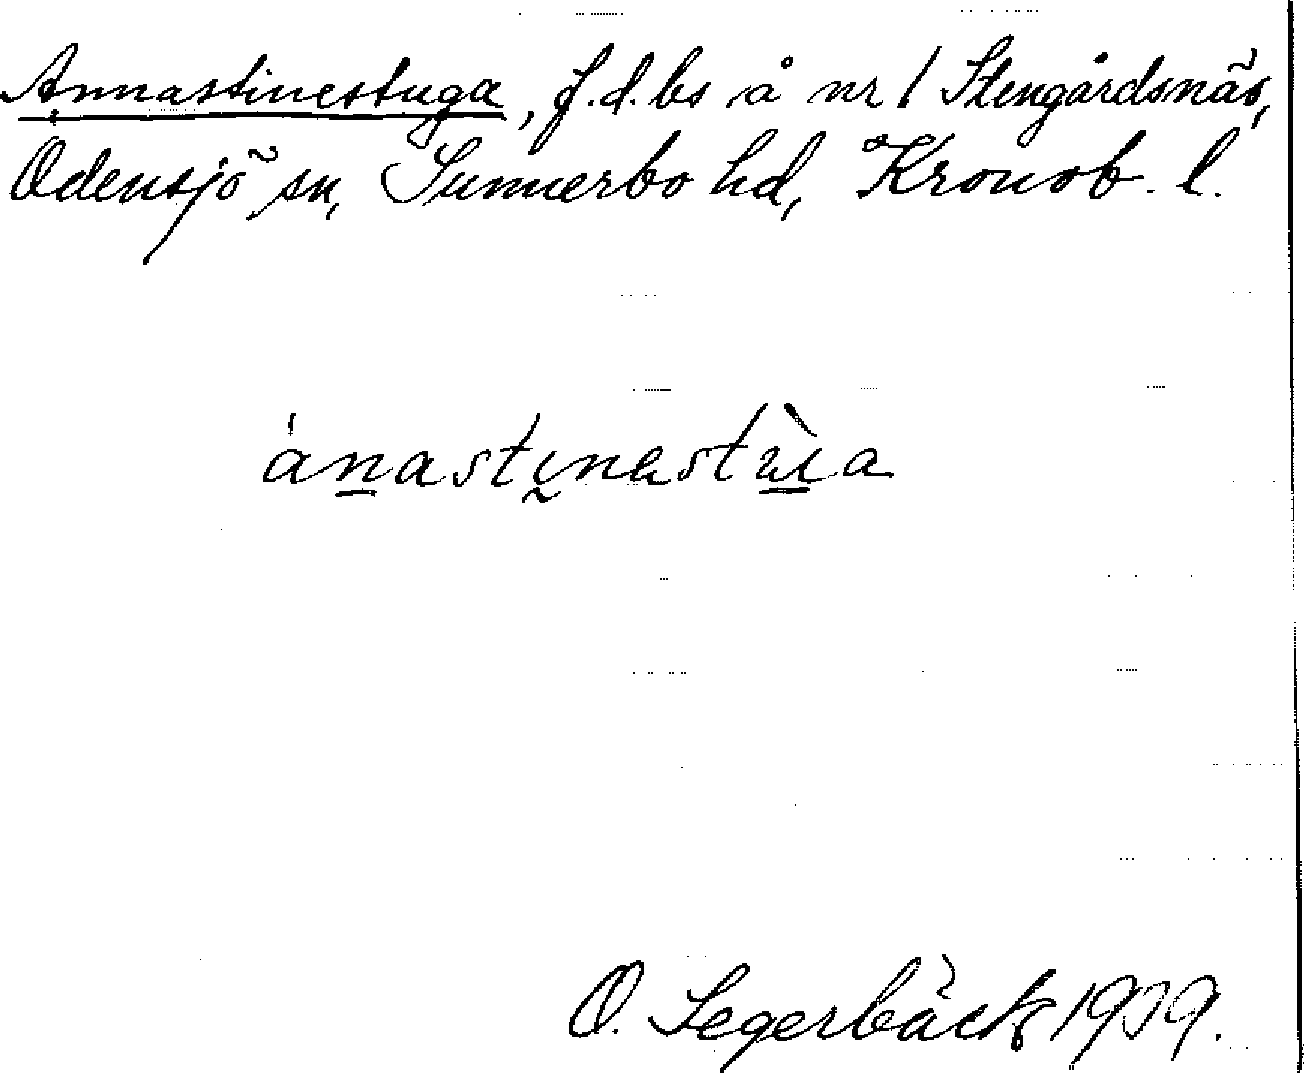 Annastinestuga, f.d. bs å nr 1 Stengårdsnäs,
Odensjö sn, Sunnerbo hd, Kronob. l.
ánastınestùıa
O. Segerbäck 1939.